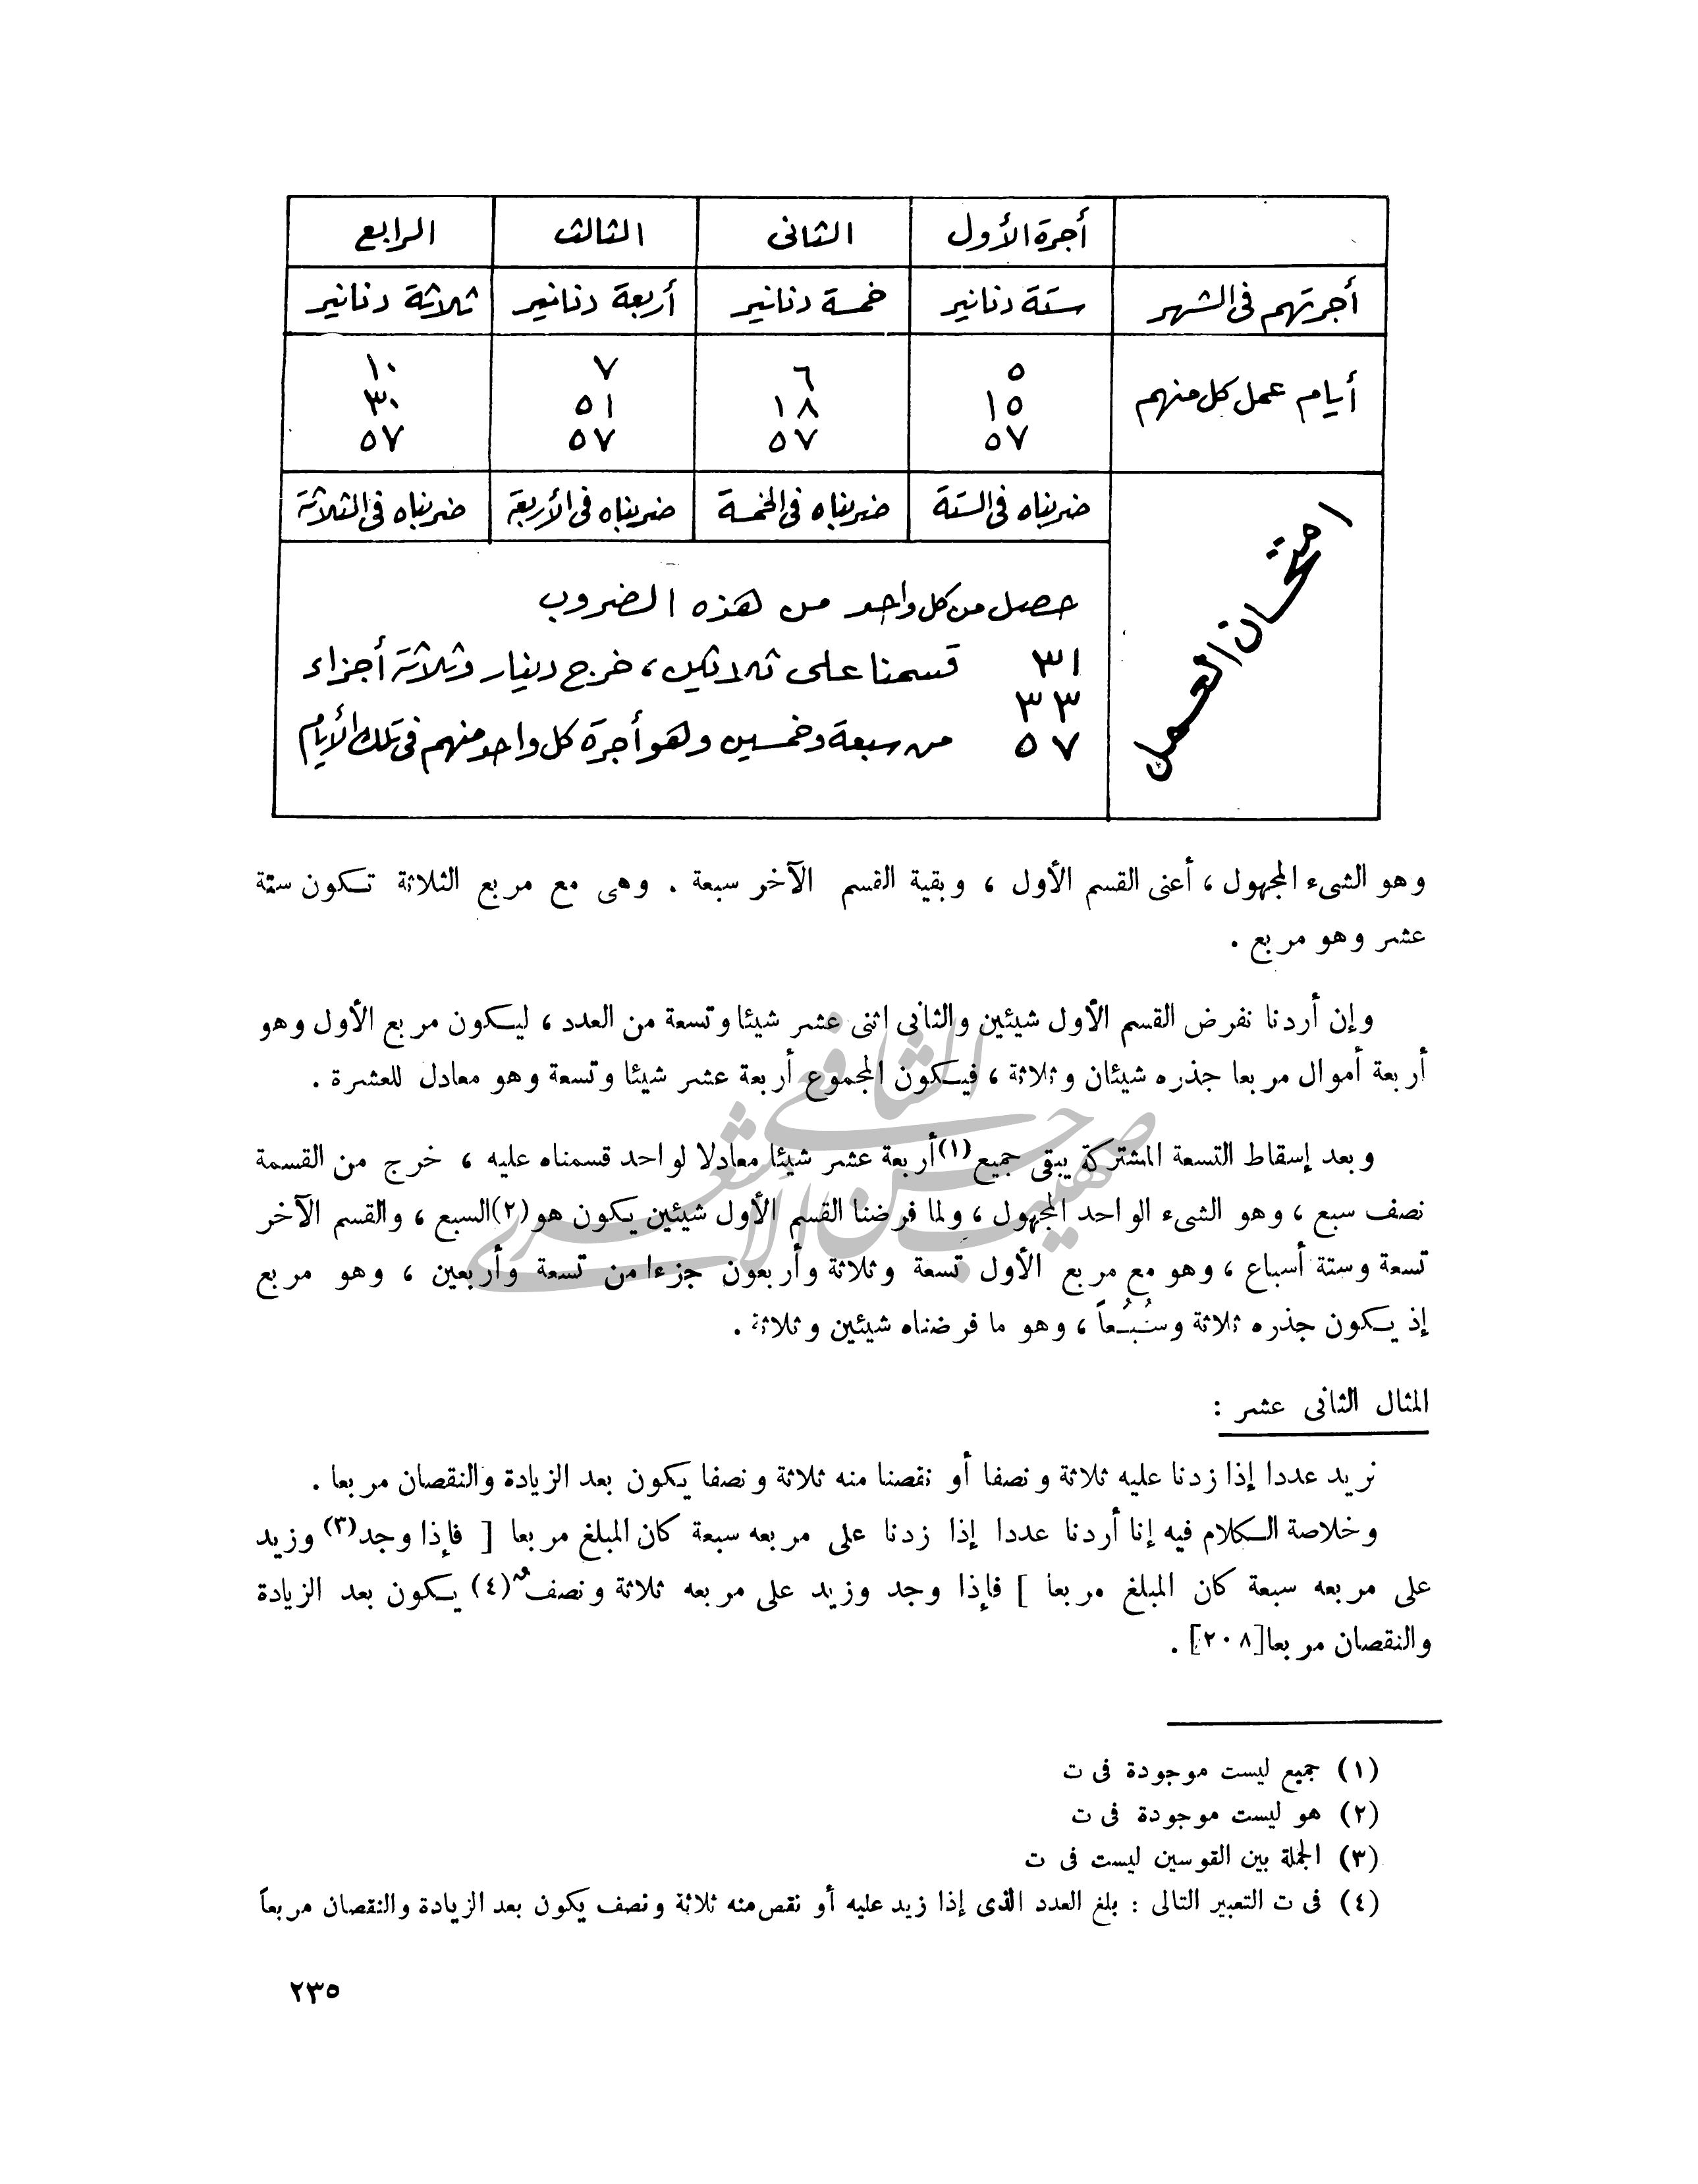 أجرة الأول الثانى الثالث الرابع
أجرتهم فى الشهر ستة دنانير خمسة دنانير أربعة دنانير ثلاثة دنانير
أيام عمل كل منهم
٥ ٦ ٧ ١٠
١٥ ١٨ ٥١ ٣٠
٥٧ ٥٧ ٥٧ ٥٧
امتحان العمل
ضربناه فى الستة ضربناه فى الخمسة ضربناه فى الأربعة ضربناه فى الثلاثة
حصل من كل واحد من هذه الضروب
٣١ قسمنا على ثلاثين، خرج دينار وثلاثة أجزاء
٣٣
٥٧ من سبعة وخمسين وهو أجرة كل واحد منهم فى تلك الأيام
وهو الشىء المجهول ، أعنى القسم الأول ، وبقية القسم الآخر سبعة . وهى مع مربع الثلاثة تكون ستة
عشر وهو مربع .
وإن أردنا نفرض القسم الأول شيئين والثانى اثنى عشر شيئا وتسعة من العدد ، ليكون مربع الأول وهو
أربعة أموال مربعا جذره شيئان وثلاثة ، فيكون المجموع أربعة عشر شيئا وتسعة وهو معادل للعشرة .
وبعد إسقاط التسعة المشتركة يبقى جميع(١) أربعة عشر شيئا معادلا لواحد قسمناه عليه ، خرج من القسمة
نصف سبع ، وهو الشىء الواحد المجهول ، ولما فرضنا القسم الأول شيئين يكون هو(٢) السبع ، والقسم الآخر
تسعة وستة أسباع ، وهو مع مربع الأول تسعة وثلاثة وأربعون جزءا من تسعة وأربعين ، وهو مربع
إذ يكون جذره ثلاثة وسُبُعاً ، وهو ما فرضناه شيئين وثلاثة .
المثال الثانى عشر :
نريد عددا إذا زدنا عليه ثلاثة ونصفا أو نقصنا منه ثلاثة ونصفا يكون بعد الزيادة والنقصان مربعا .
وخلاصة الكلام فيه إنا أردنا عددا إذا زدنا على مربعه سبعة كان المبلغ مربعا [ فإذا وجد(٣) وزيد
على مربعه سبعة كان المبلغ مربعا ] فإذا وجد وزيد على مربعه ثلاثة ونصف(٤) يكون بعد الزيادة
والنقصان مربعا[٢٠٨] .
(١) جميع ليست موجودة فى ت
(٢) هو ليست موجودة فى ت
(٣) الجملة بين القوسين ليست فى ت
(٤) فى ت التعبير التالى : بلغ العدد الذى إذا زيد عليه أو نقص منه ثلاثة ونصف يكون بعد الزيادة والنقصان مربعاً
٢٣٥